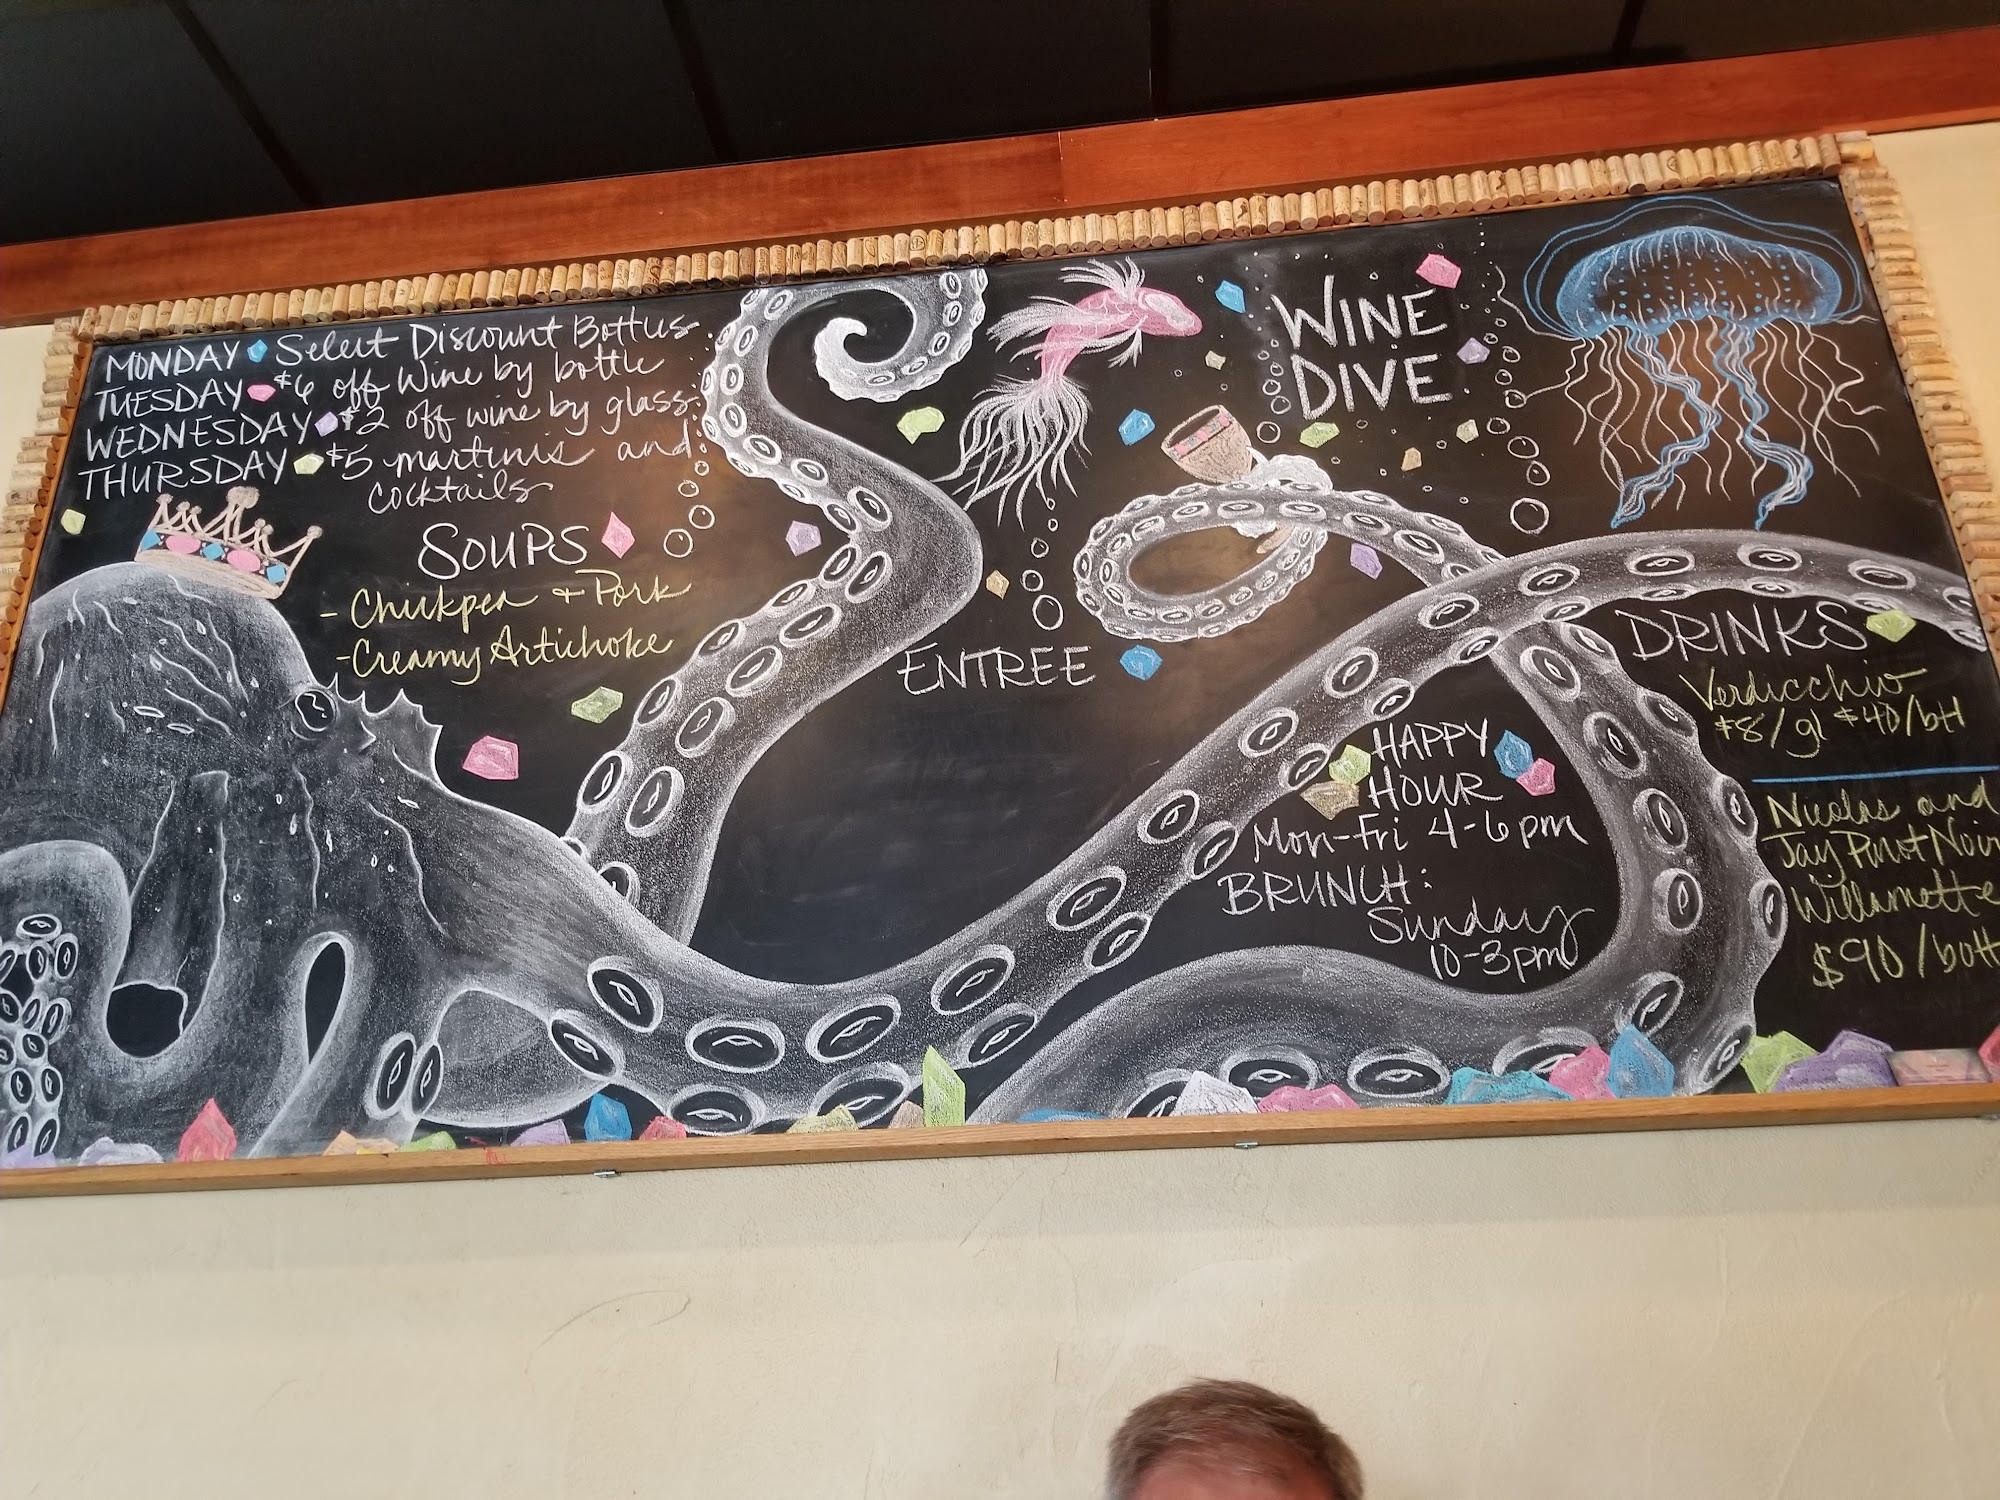 MONDAY Select Discount Bottles
TUESDAY $6 off Wine by bottle
WEDNESDAY $2 off wine by glass
THURSDAY $5 martinis and
cocktails
SOUPS
- Chickpea + Pork
- Creamy Artichoke
ENTREE
WINE
DIVE
HAPPY
HOUR
Mon-Fri 4-6pm
BRUNCH:
Sunday
10-3pm
DRINKS
Verdicchio
$8/gl $40/btl
Nicolas and
Jay Pinot Noir
Willamette
$90/bott